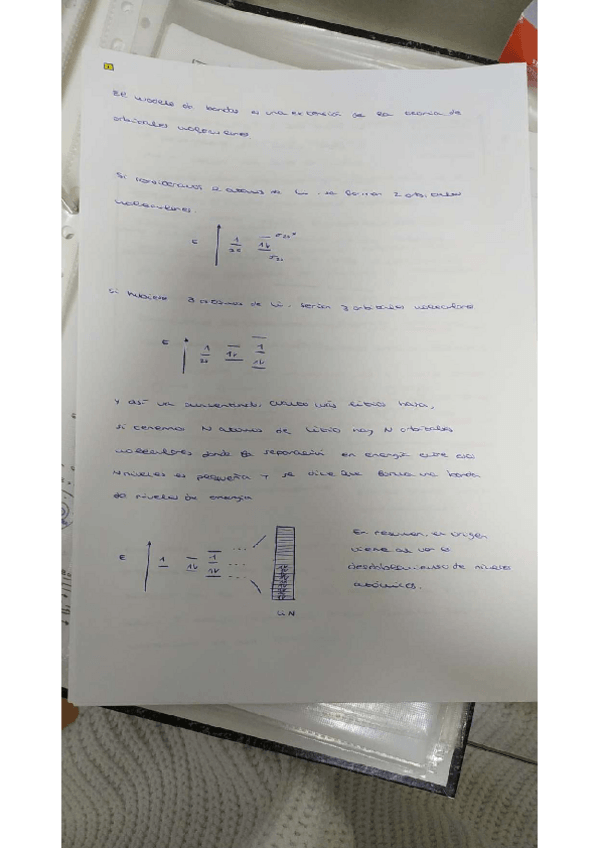 El modelo de bandas es una extensión de la teoría de
orbitales moleculares
Si consideramos 2 átomos de Li se forman 2 orbitales
moleculares.
E 1 2s 1↓ σ2s* σ2s
Si hubiera 3 átomos de Li, serían 3 orbitales moleculares
E 1 2s 1↓ 1 1↓
Y así va aumentando, cuanto más litio haya,
si tenemos N átomos de Litio hay N orbitales
moleculares donde la separación en energía entre esos
N niveles es pequeña y se dice que forma una banda
de niveles de energía
E 1 1↓ 1 1↓
LiN
En resumen, el origen
viene
desdoblamiento de niveles
atómicos.